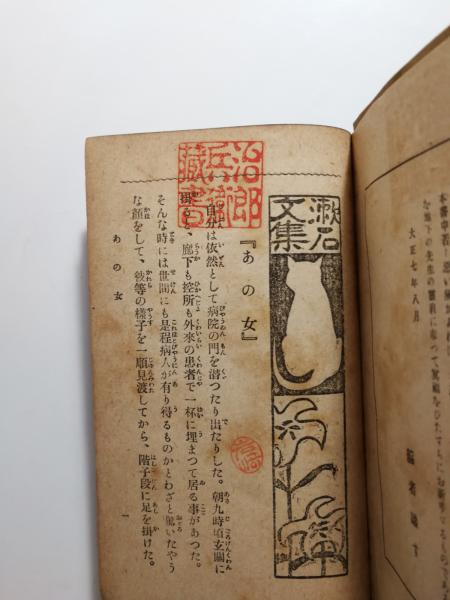 大正七年八月
編者識す
漱石
文集
治郎
兵衛
藏書
『あの女』
自分は依然として病院の門を潜つたり出たりした。朝九時頃玄關に
掛ると、廊下も控所も外來の患者で一杯に埋まつて居る事があつた。
そんな時には世間にも是程病人が有り得るものかとわざと驚いたやう
な顏をして、彼等の樣子を一順見渡してから、階子段に足を掛けた。
あの女
一